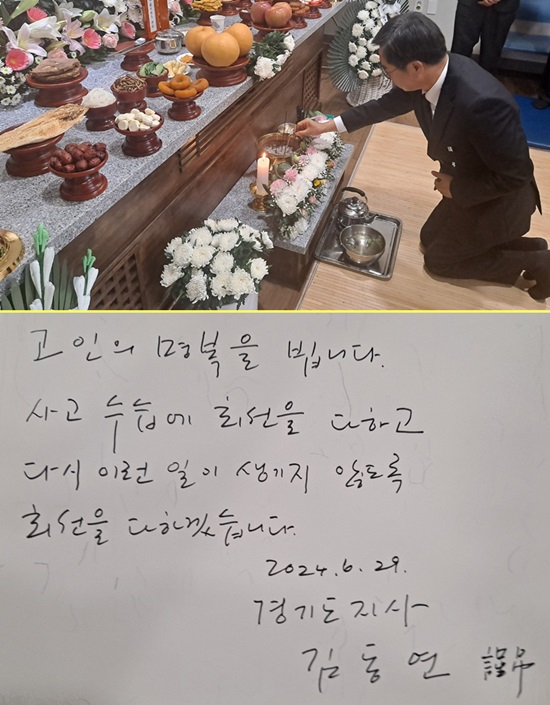 고인의 명복을 빕니다.
사고 수습에 최선을 다하고
다시 이런 일이 생기지 않도록
최선을 다하겠습니다.
2024.6.29.
경기도지사
김동연 謹弔